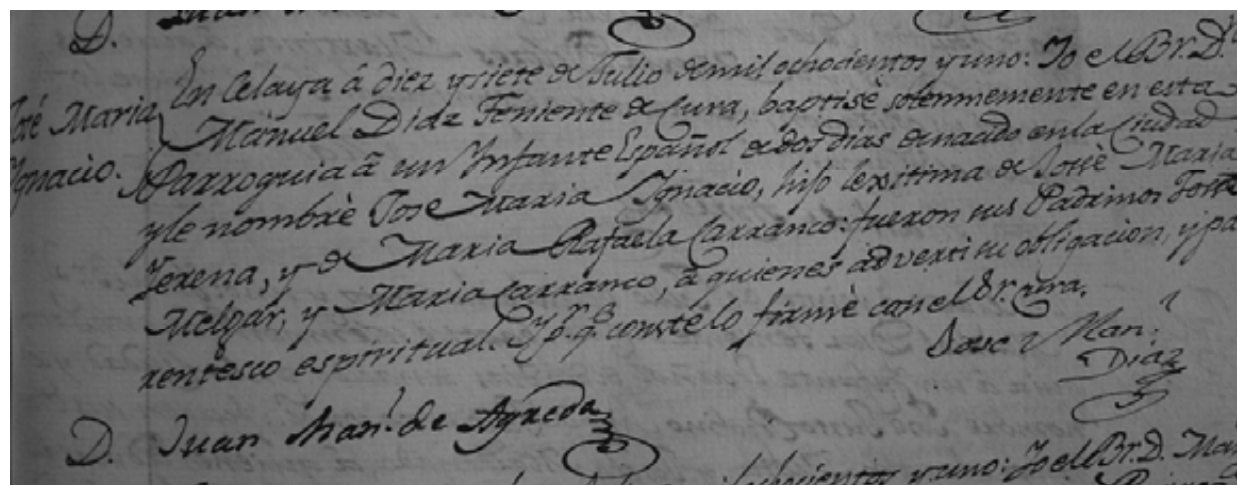 D. Juan
José Maria Ignacio.
En Celaya á diez y siete de Julio de mil ochocientos y uno: Yo el Br. D.
Manuel Diaz Teniente de Cura, baptisè solemnemente en esta
Parroquia â un Infante Español de dos dias de nacido en la Ciudad
y le nombrè Jose Maria Ignacio, hijo lexitima de Jose Maria
Yerena, y de Maria Rafaela Carranco: fueron sus Padrinos Jose
Melgar, y Maria Carranco, â quienes adverti su obligacion, y pa
rentesco espiritual. Y p.r q.e constelo firmè con el Sr. Cura.
Man.l
Diaz
D. Juan Man.l de Agreda
ochocientos y uno: Yo el Br. D. Man